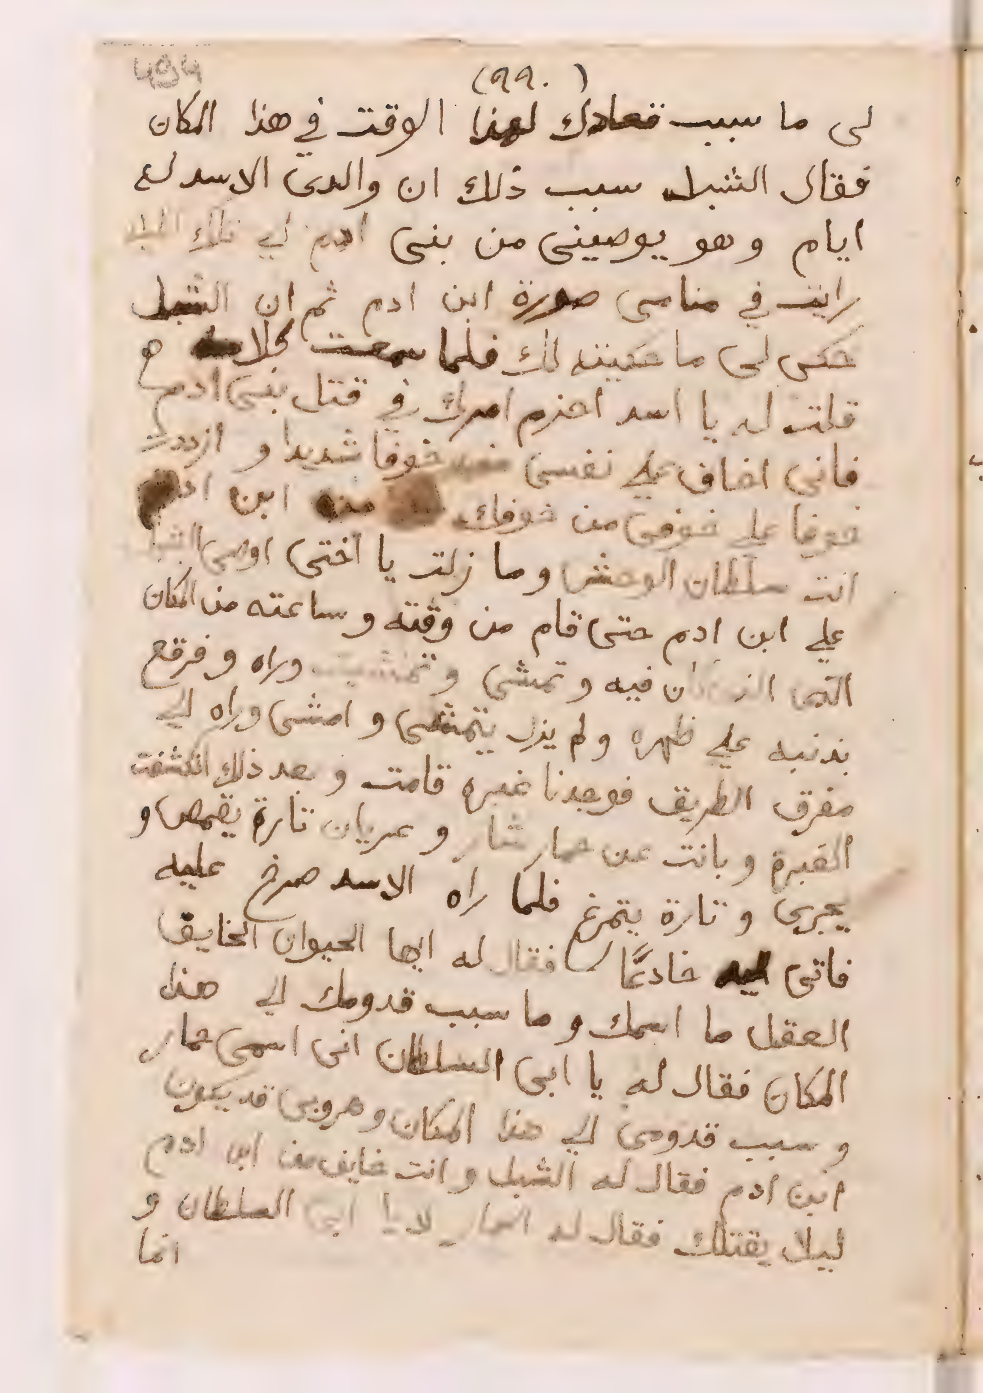 494
(٩٩٠)
لى ما سبب قعادك لهذا الوقت في هذا المكان
فقال الشبل سبب ذلك ان والدى الاسد له
ايام وهو يوصينى من بنى ادم في تلك
رايت في منامى صورة ابن ادم ثم ان الشبل
حكى لى ما حكيته لك فلما سمعت كلامه
قلت له يا اسد احزم امرك في قتل بنى ادم
فانى اخاف على نفسى منه خوفا شديدا و ازددت
خوفا على خوفى من خوفك من ابن ادم
انت سلطان الوحش وما زلت يا اختى اوصى الشبل
على ابن ادم حتى قام من وقته و ساعته من المكان
الذى كان فيه و تمشى و تمشيت وراه و فرقع
بدنبه على ظهره ولم يزل يتمشى و امشى وراه الي
مفرق الطريق فوجدنا غبره قامت و بعد ذلك انكشفت
الغبرة وبانت عن حمار شارد و عريان تارة يقمص و
يجرى و تارة يتمرغ فلما راه الاسد صرخ عليه
فاتى اليه خادعًا فقال له ايها الحيوان الخايف
العقل ما اسمك و ما سبب قدومك الي هذا
المكان فقال له يا ابى السلطان انى اسمى حمار
و سبب قدومى الي هذا المكان وهروبى قد يكون
ابن ادم فقال له الشبل و انت خايف من ابن ادم
ليلا يقتلك فقال له الحمار لا يا ابى السلطان و
انما